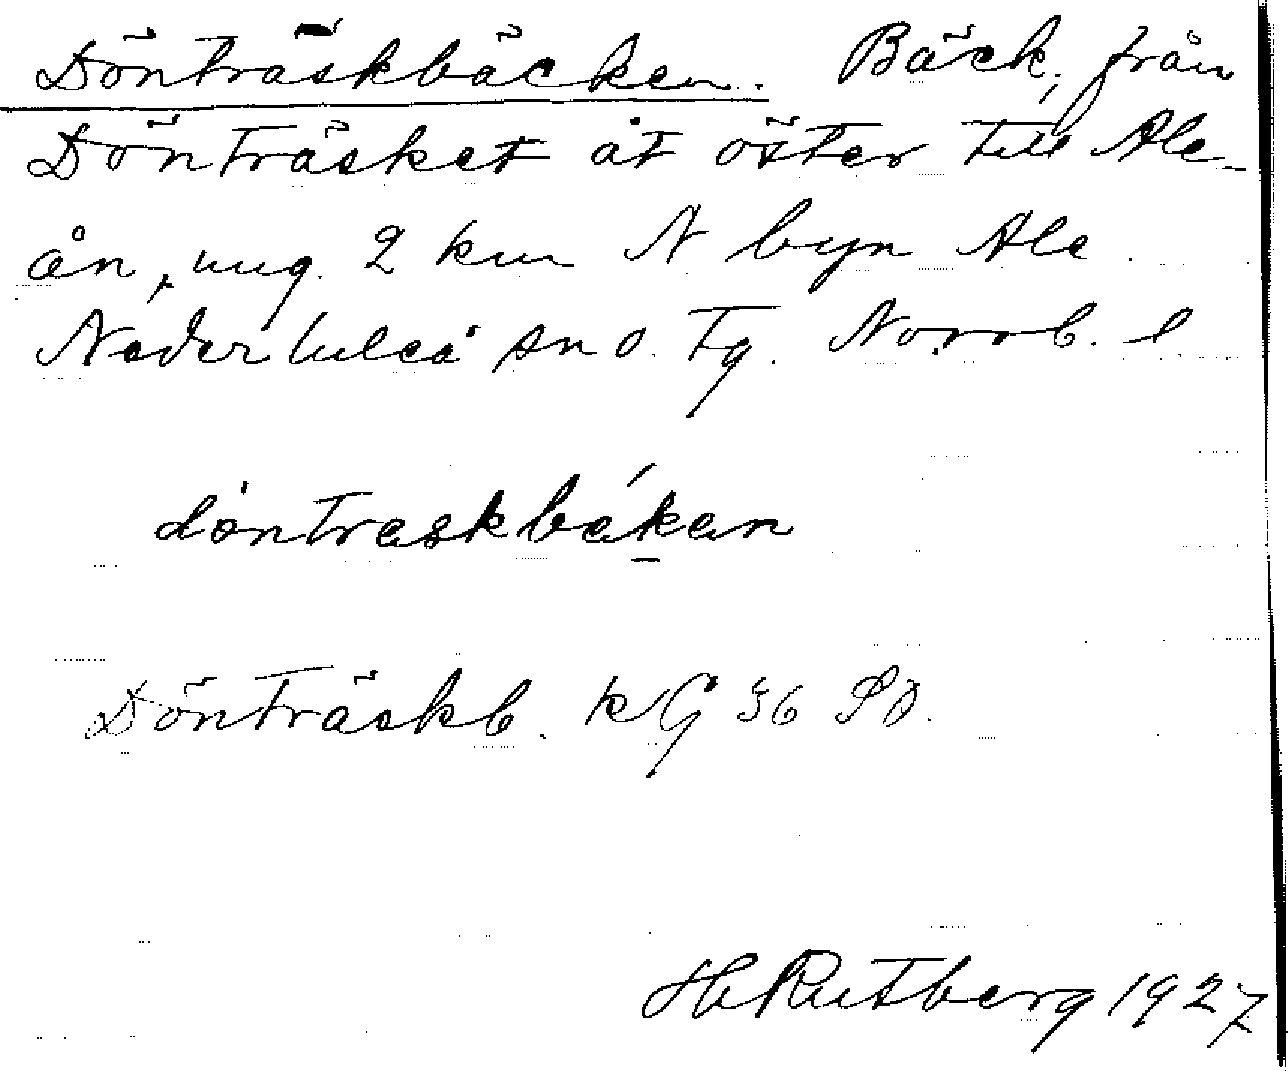 Dönträskbäcken. Bäck, från
Dönträsket åt öster till Ale-
ån, ung. 2 km N byn Ale
Nederluleå sn o. Tg. Norrb. l.
döntraskbäkan
Dönträskb. kG 36 SO.
H Rutberg 1927